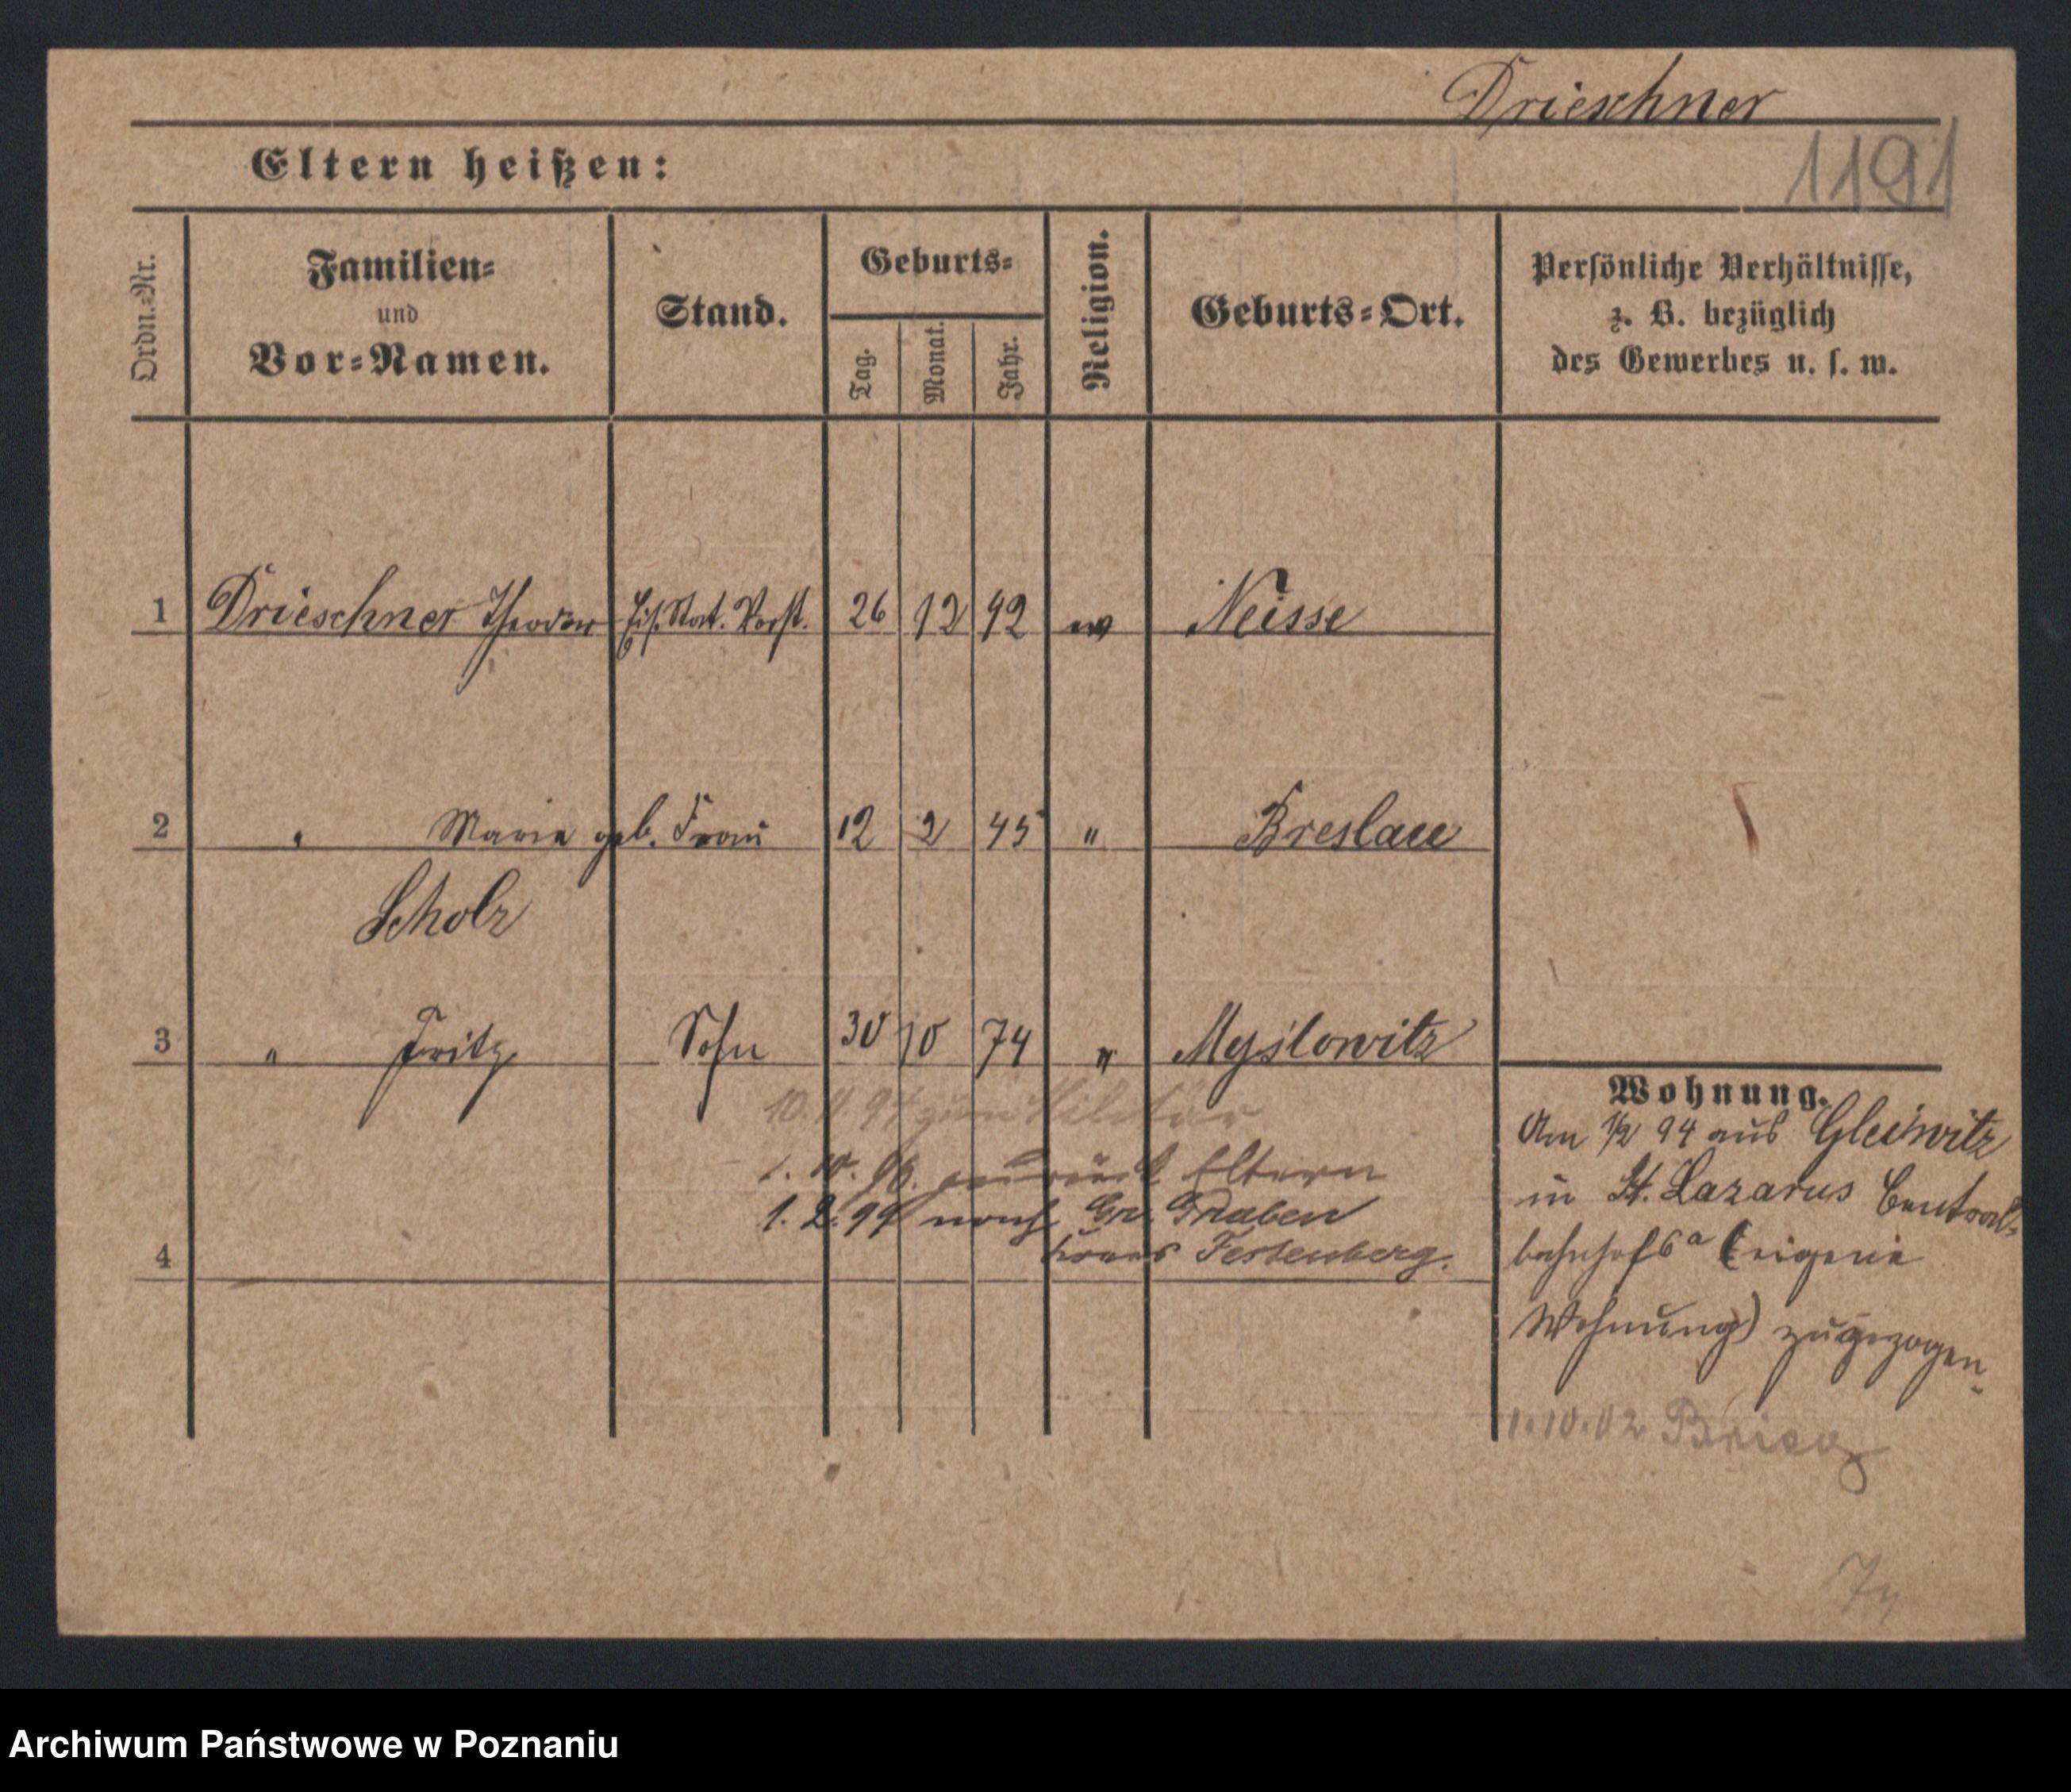 Drieschner
1191
Eltern heißen:
Ordn.=Nr.
Familien=
und
Vor=Namen.
Stand.
Geburts=
Tag.
Monat.
Jahr.
Religion.
Geburts=Ort.
Persönliche Verhältnisse,
z. B. bezüglich
des Gewerbes u. s. w.
1 Drieschner Theodor Eis. Stat. Vorst. 26 12 42 ev Neisse
2 " Marie geb. Frau 12 2 45 " Breslau
Scholz
3 " Fritz Sohn 30 10 74 " Myslowitz
10. 4. 94 zum Militär
1. 10. 96. zurück Eltern
1. 2. 99 nach Gr. Graben
Kreis Festenberg.
4
Wohnung.
Am 1/2 94 aus Gleiwitz
in St. Lazarus Central=
bahnhofs (eigene
Wohnung) zugezogen.
1.10.02 Brieg
Archiwum Państwowe w Poznaniu